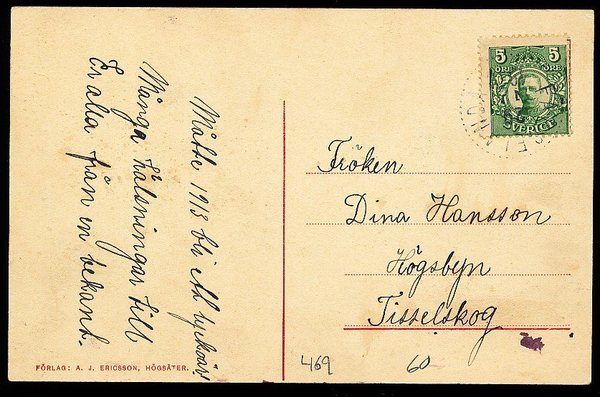 Måtte 1913 bli ett lyckoår!
Många hälsningar till
Er alla från en bekant.
FÖRLAG: A. J. ERICSSON, HÖGSÄTER.
5 5
ÖRE ÖRE
SVERIGE
Fröken
Dina Hansson
Högsbyn
Tisselskog
469
60